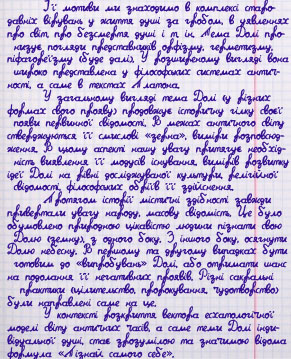 Її мотиви ми знаходимо в комплексі старо-
давніх вірувань у життя душі за гробом, в уявленнях
про світ, про безсмертя душі і т. ін. Тема Долі про-
низує погляди представників орфізму, герметизму,
піфагореїзму (буде далі). У розширеному вигляді вона
широко представлена у філософських системах антич-
ності, а саме в текстах Платона.
У загальному вигляді тема Долі (у різних
формах свого прояву) продовжує історичну лінію своєї
появи первинної свідомості. В межах античного світу
стверджуються її смислові «зерна», виміри розповсюд-
ження. В цьому аспекті нашу увагу притягує необхід-
ність виявлення її модусів існування, вимірів розвитку
ідеї Долі на рівні досліджуваної культури, релігійної
свідомості, філософських обріїв її здійснення.
Протягом історії містичні здібності завжди
привертали увагу народу, масову свідомість. Це було
обумовлено природною цікавістю людини пізнати свою
Долю (земну), з одного боку. З іншого боку, осягнути
Долю небесну. В першому та другому випадках бути
готовим до «випробувань» Долі, або отримати шанс
на подолання її негативних проявів. Різні сакральні
практики (цілительство, пророкування, чудотворство)
були направлені саме на це.
У контексті розкриття вектора есхатологічної
моделі світу античних часів, а саме теми Долі інди-
відуальної душі, стає зрозумілою та значимою відома
формула «Пізнай самого себе».